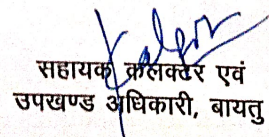 सहायक कलक्टर एवं
उपखण्ड अधिकारी, बायतु